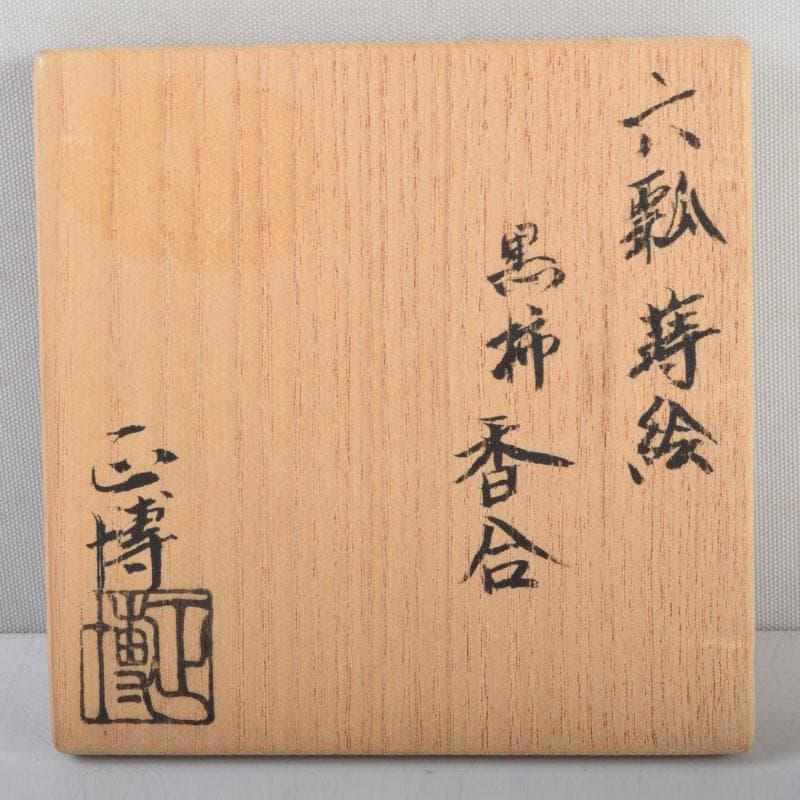 六瓢蒔絵
黒柿香合
正博
正博